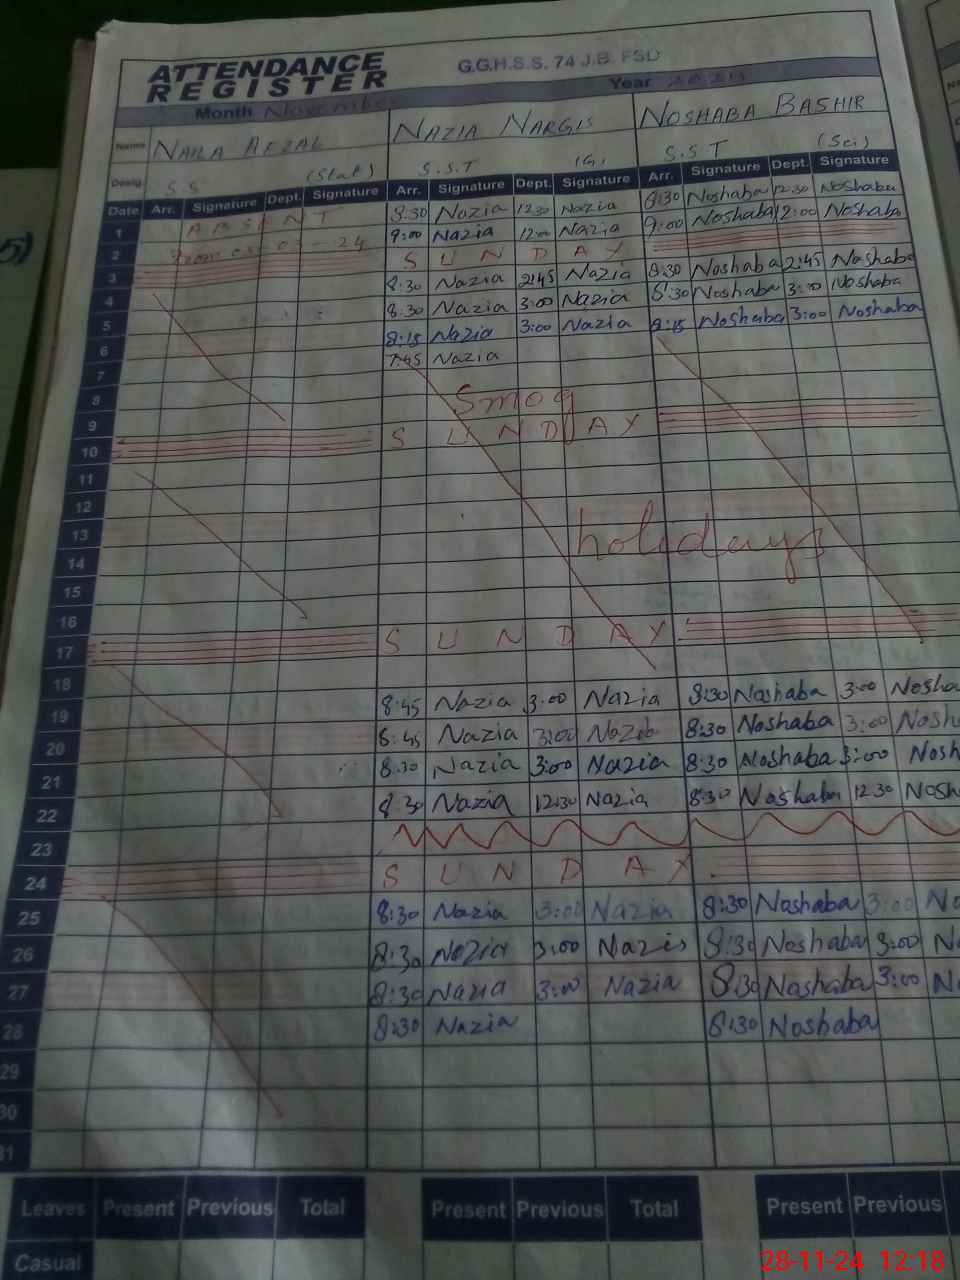 ATTENDANCE REGISTER
G.G.H.S.S. 74 J.B. FSD
Month November Year 2024
Name NAILA AFZAL NAZIA NARGIS NOSHABA BASHIR
Desig. S.S (Stat) S.S.T (G) S.S.T (Sci)
Date Arr. Signature Dept. Signature Arr. Signature Dept. Signature Arr. Signature Dept. Signature
1 ABSENT 8:30 Nazia 12:30 Nazia 8:30 Noshaba 12:30 Noshaba
2 24 9:00 Nazia 12:00 Nazia 9:00 Noshaba 12:00 Noshaba
3 SUNDAY
4 8:30 Nazia 2:45 Nazia 8:30 Noshaba 2:45 Noshaba
5 8:30 Nazia 3:00 Nazia 8:30 Noshaba 3:00 Noshaba
6 8:15 Nazia 3:00 Nazia 8:15 Noshaba 3:00 Noshaba
7 7:45 Nazia
8
9 Smog
10 SUNDAY
11
12
13
14 holidays
15
16
17 SUNDAY
18
19 8:45 Nazia 3:00 Nazia 8:30 Noshaba 3:00 Nosha
20 8:45 Nazia 3:00 Nazia 8:30 Noshaba 3:00 Nosh
21 8:30 Nazia 3:00 Nazia 8:30 Noshaba 3:00 Nosh
22 8:30 Nazia 12:30 Nazia 8:30 Noshaba 12:30 Nosh
23
24 SUNDAY
25 8:30 Nazia 3:00 Nazia 8:30 Noshaba 3:00 No
26 8:30 Nazia 3:00 Nazia 8:30 Noshaba 3:00 N
27 8:30 Nazia 3:00 Nazia 8:30 Noshaba 3:00 N
28 8:30 Nazia 8:30 Noshaba
29
30
31
Leaves Present Previous Total Present Previous Total Present Previous
Casual
28-11-24 12:18